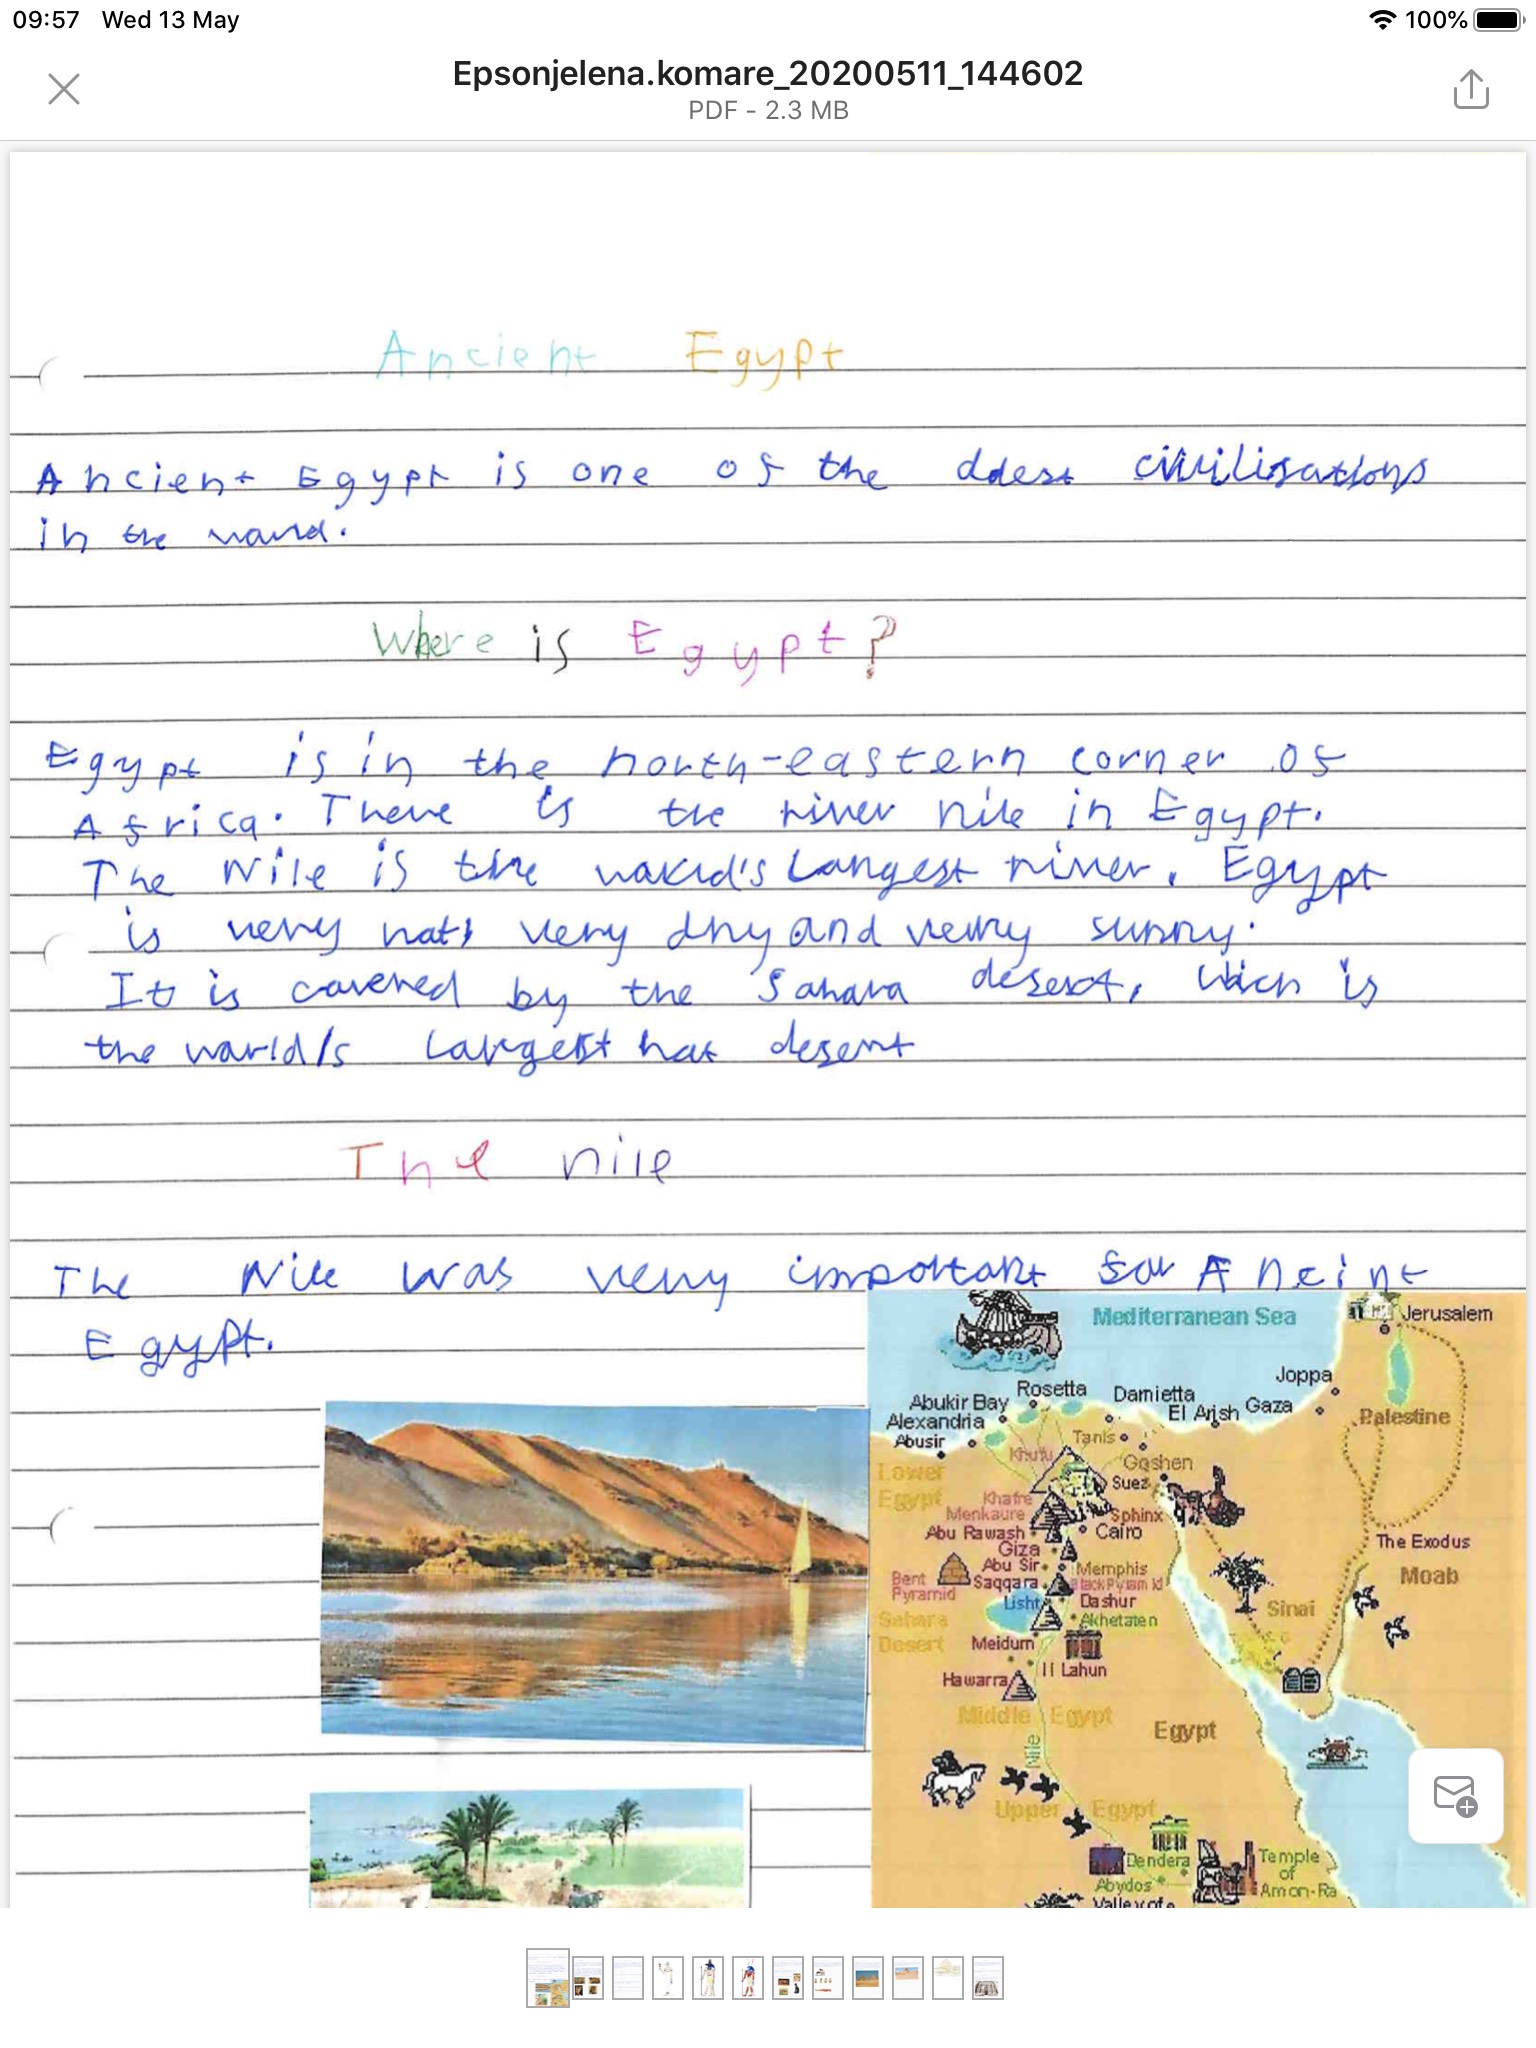 09:57 Wed 13 May
100%
Epsonjelena.komare_20200511_144602
PDF - 2.3 MB
Ancient Egypt
Ancient Egypt is one of the oldest civilisations
in the world.
Where is Egypt?
Egypt is in the north-eastern corner of
Africa. There is the river nile in Egypt.
The Nile is the world's Largest river. Egypt
is very hot, very dry and very sunny.
It is covered by the Sahara desert, which is
the world's largest hot desert
The nile
The Nile was very important for Ancint
Egypt.
Mediterranean Sea
Jerusalem
Joppa
Rosetta
Damietta
Abukir Bay
El Arish
Gaza
Alexandria
Palestine
Abusir
Tanis
Khufu
Goshen
Lower
Egypt
Suez
Khafre
Menkaure
Sphinx
Abu Rawash
Cairo
Giza
The Exodus
Abu Sir
Memphis
Moab
Bent
Pyramid
Saqqara
Black Pyramid
Lisht
Dashur
Sinai
Sahara
Desert
Akhetaten
Meidum
Il Lahun
Hawarra
Middle Egypt
Egypt
Nile
Upper Egypt
Dendera
Temple
of
Amon-Ra
Abydos
Valley of